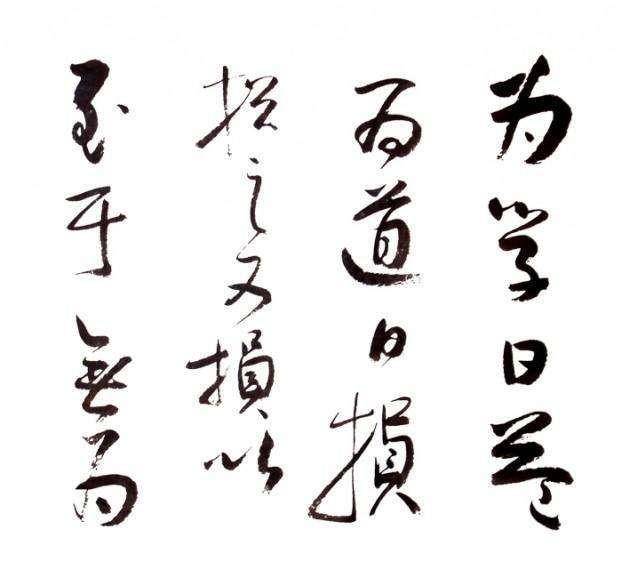 为学日益
为道日损
损之又损以
至于無为